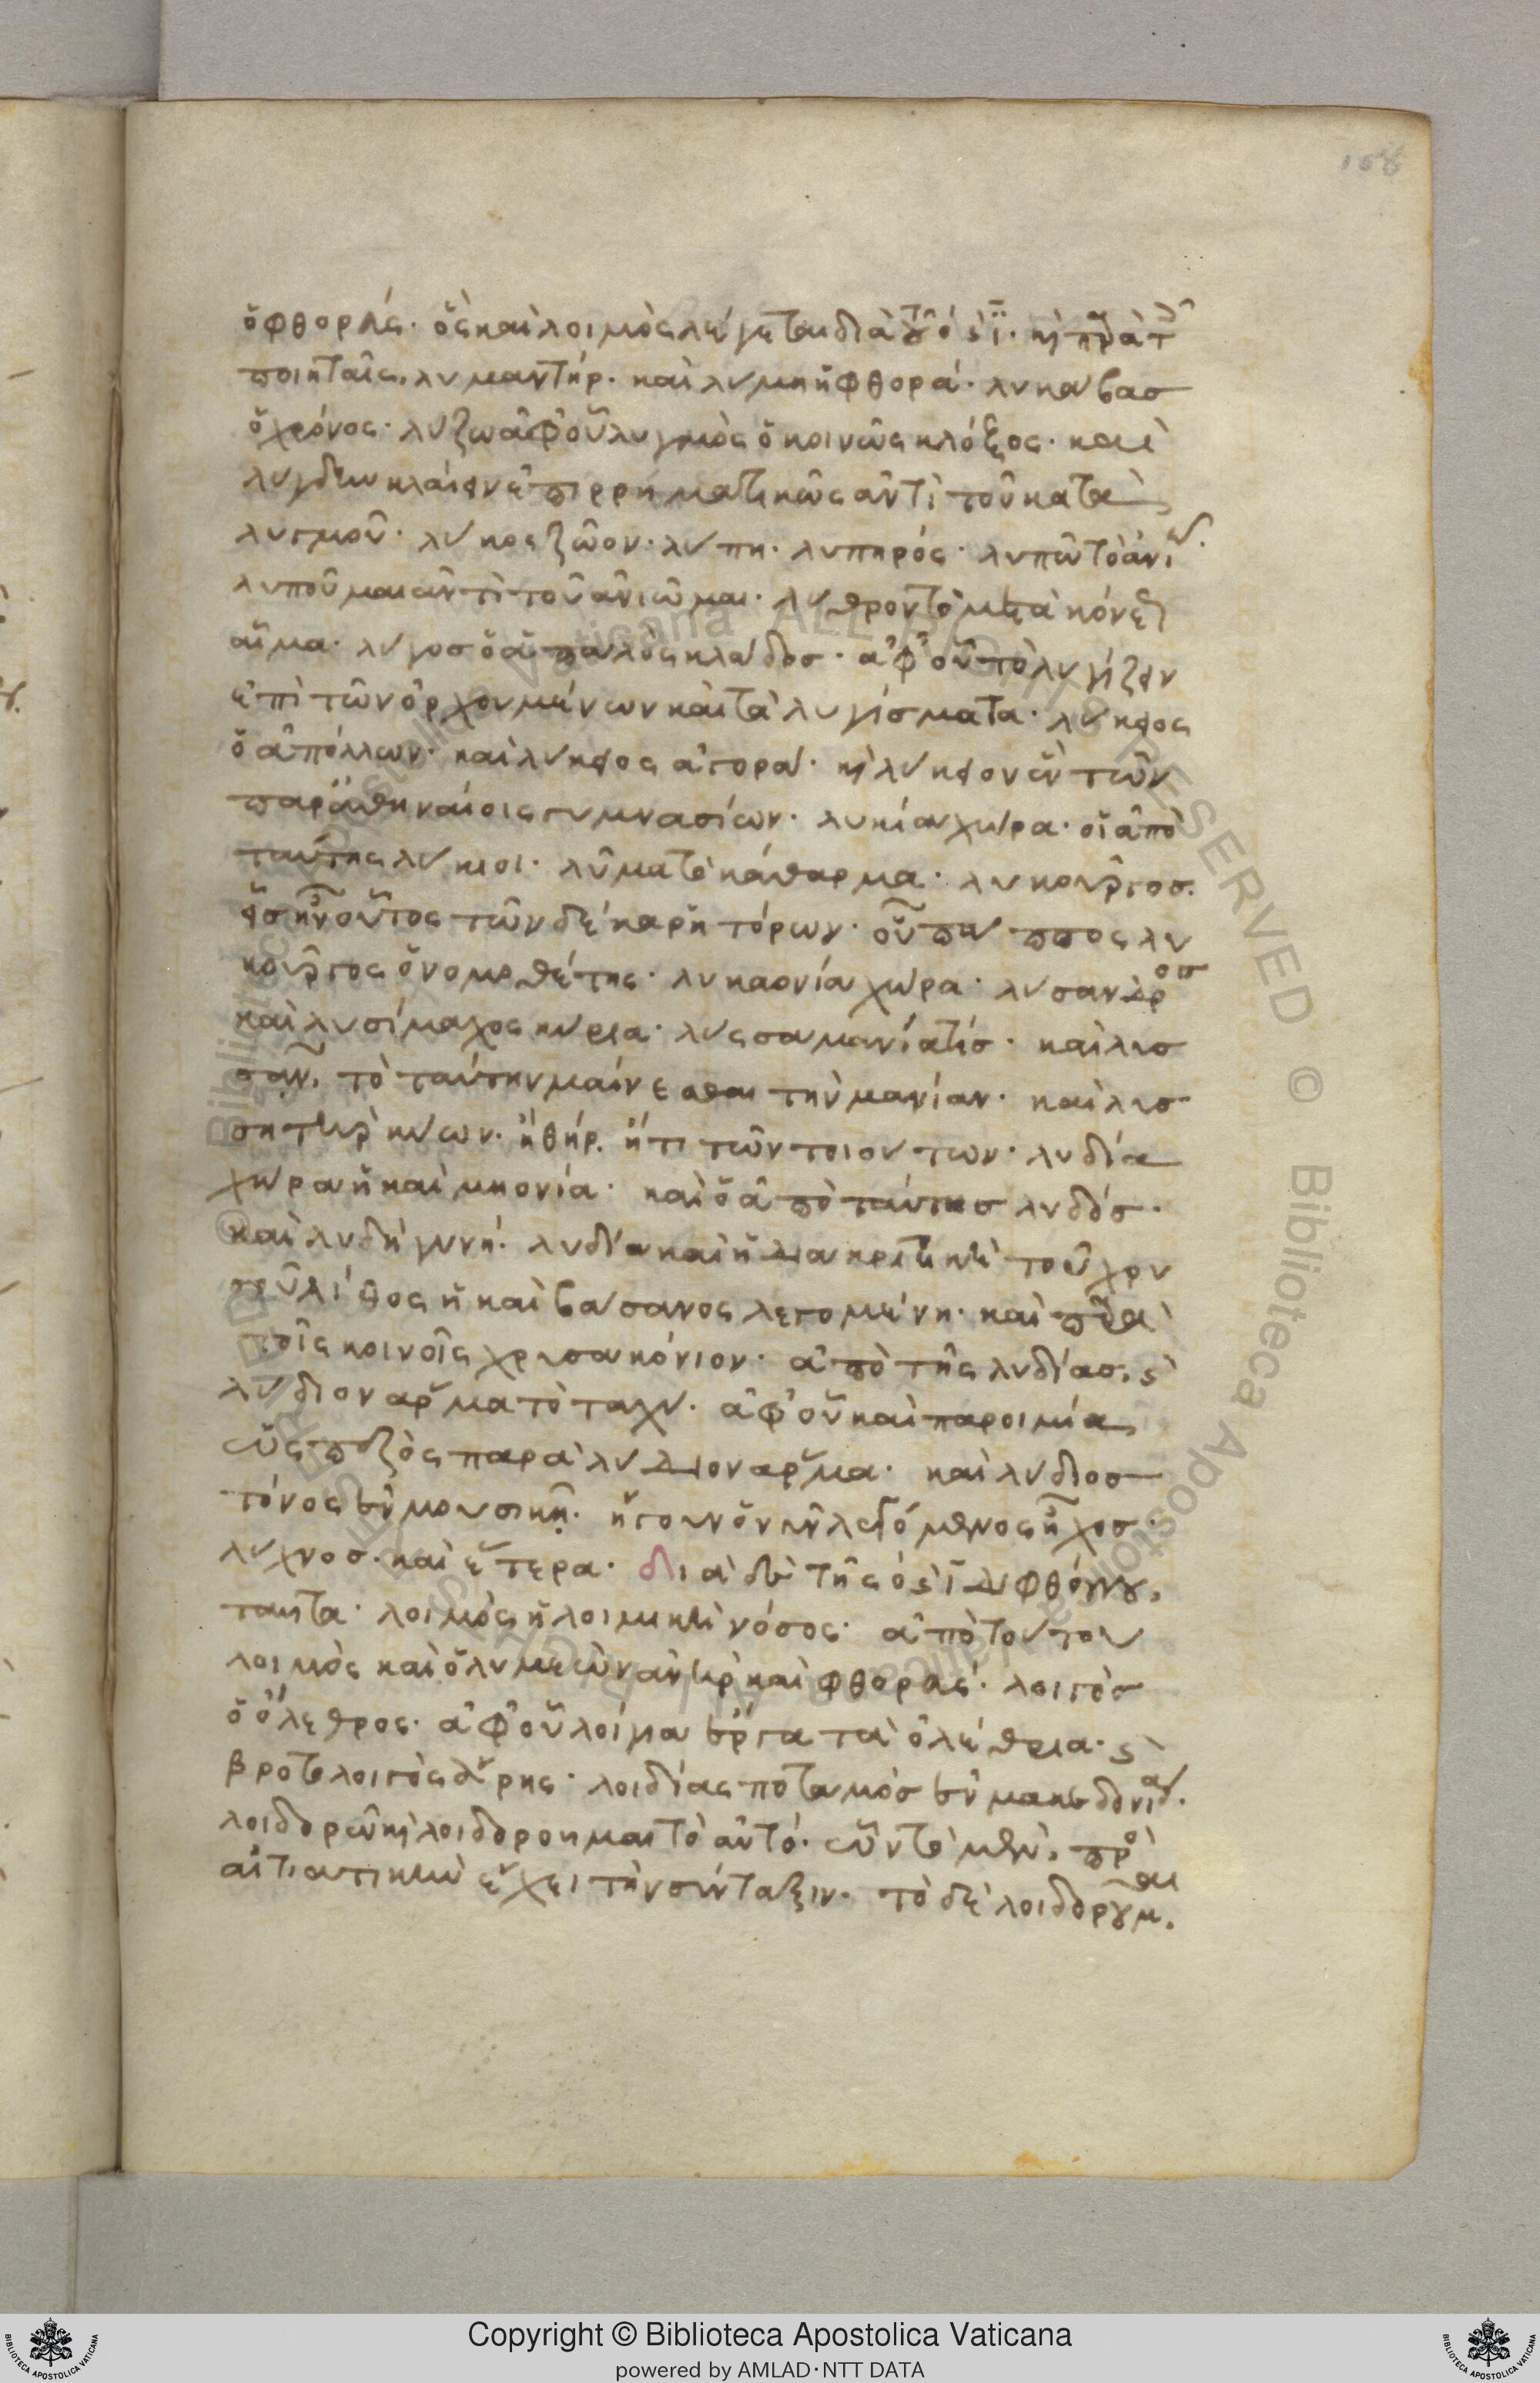 158
ὁ φθορεύς· ὃς καὶ λοιμὸς λέγεται διὰ τοῦ ο καὶ ϊ· καὶ παρὰ τοῖς
ποιηταῖς, λυμαντήρ· καὶ λύμη ἡ φθορά· λυκάβας
ὁ χρόνος· λύζω ἀφ' οὗ λυγμὸς ὁ κοινῶς κλόξος· καὶ
λύγδην κλάειν ἐπιρρηματικῶς ἀντὶ τοῦ κατὰ
λυγμοῦ· λύκος ζῶον· λύπη· λυπηρός· λυπῶ τὸ ἀνιῶ·
λυποῦμαι ἀντὶ τοῦ ἀνιῶμαι· λύθρον τὸ μετὰ κόνεως
αἷμα· λύγος ὁ ἁπαλὸς κλάδος· ἀφ' οὗ τὸ λυγίζειν
ἐπὶ τῶν ὀρχουμένων καὶ τὰ λυγίσματα· λύκειος
ὁ ἀπόλλων· καὶ λύκειος ἀγορά· καὶ λύκειον ἓν τῶν
παρ' ἀθηναίοις γυμνασίων· λυκία χώρα· οἱ ἀπὸ
ταύτης λύκιοι· λῦμα τὸ κάθαρμα· λυκοῦργος·
εἷς ἦν οὗτος τῶν δέκα ῥητόρων· οὗ πάππος λυ
κοῦργος ὁ νομοθέτης· λυκαονία χώρα· λύσανδρος
καὶ λυσίμαχος κύρια· λύσσα μανία τίς· καὶ λυσ
σᾶν, τὸ ταύτην μαίνεσθαι τὴν μανίαν· καὶ λυσ
σητὴρ κύων· ἢ θήρ. ἤ τι τῶν τοιούτων· λυδία
χώρα ἡ καὶ μηονία· καὶ ὁ ἀπὸ ταύτης λυδός·
καὶ λυδὴ γυνή· λυδία καὶ ἡ διακριτικὴ τοῦ χρυ
σοῦ λίθος ἡ καὶ βάσανος λεγομένη· καὶ παρὰ
τοῖς κοινοῖς χρυσακόνιον· ἀπὸ τῆς λυδίας, καὶ
λύδιον ἅρμα τὸ ταχύ· ἀφ' οὗ καὶ παροιμία
ὡς πεζὸς παρὰ λύδιον ἅρμα· καὶ λύδιος
τόνος ἐν μουσικῇ· ἤγουν ὁ νῦν λεγόμενος ἦχος·
λύχνος· καὶ ἕτερα· διὰ δὲ τῆς ο καὶ ϊ διφθόγγου,
ταῦτα· λοιμὸς ἡ λοιμικὴ νόσος· ἀπὸ τούτου
λοιμὸς καὶ ὁ λυμεὼν ἀνὴρ καὶ φθορεύς· λοιγὸς
ὁ ὄλεθρος· ἀφ' οὗ λοίγια ἔργα τὰ ὀλέθρια· καὶ
βροτολοιγὸς ἄρης· λοιδίας ποταμὸς ἐν μακεδονίᾳ·
λοιδορῶ καὶ λοιδοροῦμαι τὸ αὐτό· ὧν τὸ μὲν, πρὸς
αἰτιατικὴν ἔχει τὴν σύνταξιν· τὸ δὲ λοιδοροῦμαι,
Copyright © Biblioteca Apostolica Vaticana
powered by AMLAD·NTT DATA